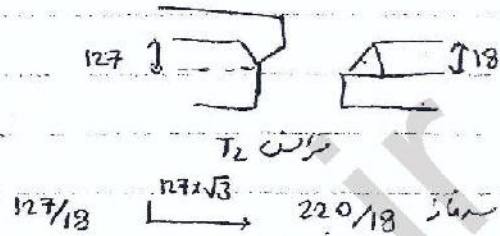 127 18
ترانس T2
127/18 127x√3 220/18 سه فاز